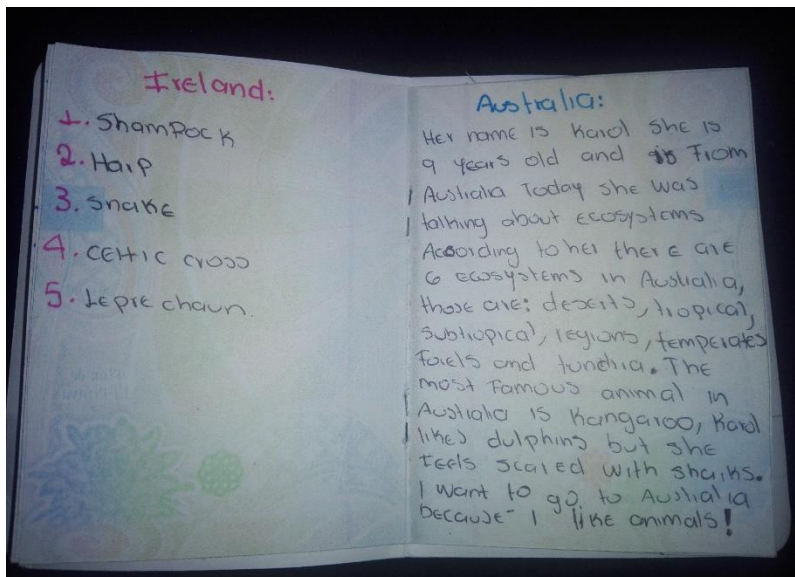 Ireland:
1. ShamPock
2. Harp
3. snake
4. CEltic cross
5. Leprechaun.
Australia:
Her name is Karol she is
9 years old and is From
Australia Today she was
talking about Ecosystems
According to her there are
6 ecosystems in Australia,
those are: deserts, tropical,
subtropical, regions, temperates
forels and tundria. The
most Famous animal in
Australia is Kangaroo, Karol
likes dulphins but she
feels scared with sharks.
I want to go to Australia
because I like animals!